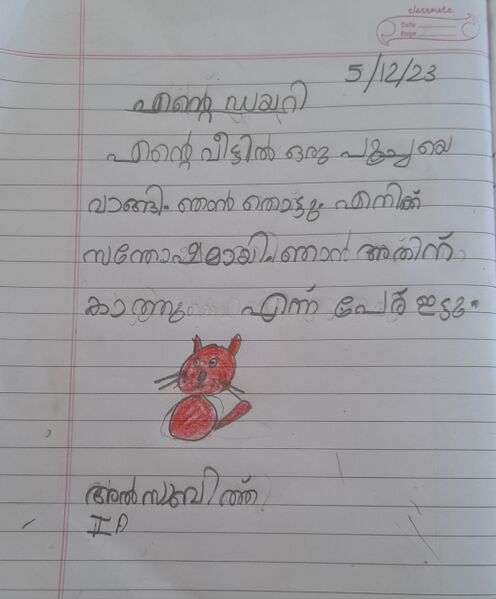 classmate
Date
Page
5/12/23
എന്റെ ഡയറി
എന്റെ വീട്ടിൽ ഒരു പൂച്ചയെ
വാങ്ങി. ഞൻ തൊട്ടു. എനിക്ക്
സന്തോഷമായി. ഞാൻ അതിന്
കാത്തു എന്ന് പേര് ഇട്ടു.
അൽസബിത്ത്